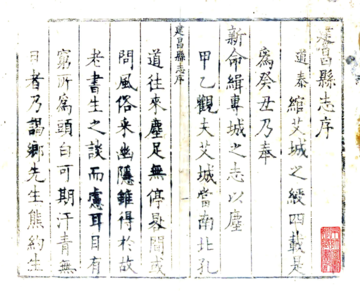 建昌縣志序
道泰綰艾城之綬四載是
爲癸丑乃奉
新命緝專城之志以塵
甲乙觀夫艾城當南北孔
建昌縣志序
道往來塵足無停晷間或
問風俗采幽隱雖得於故
老書生之談而慮耳目有
窮所爲頭白可期汗青無
日者乃謁鄉先生熊約生